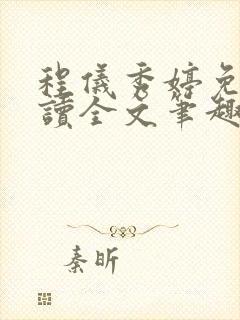 程儀秀婷免
讀全文筆趣
秦昕